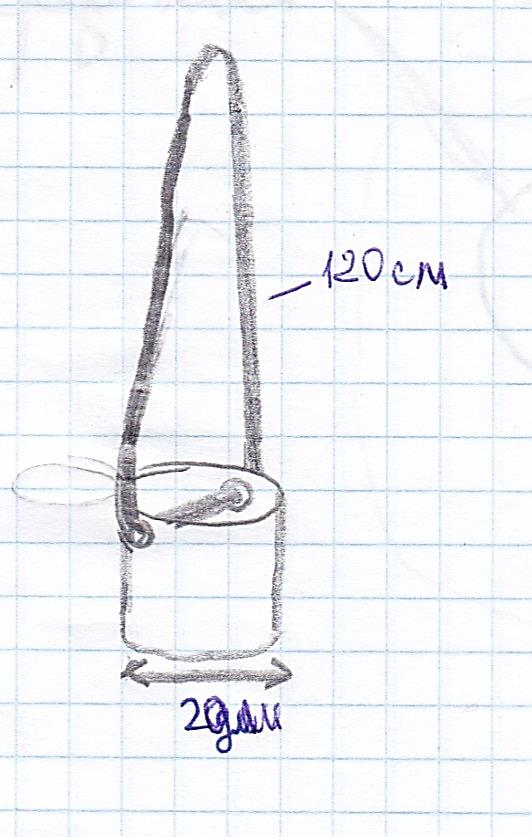 120 см
2 дм